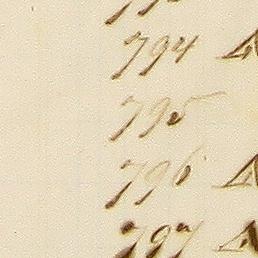 794
795
796
797